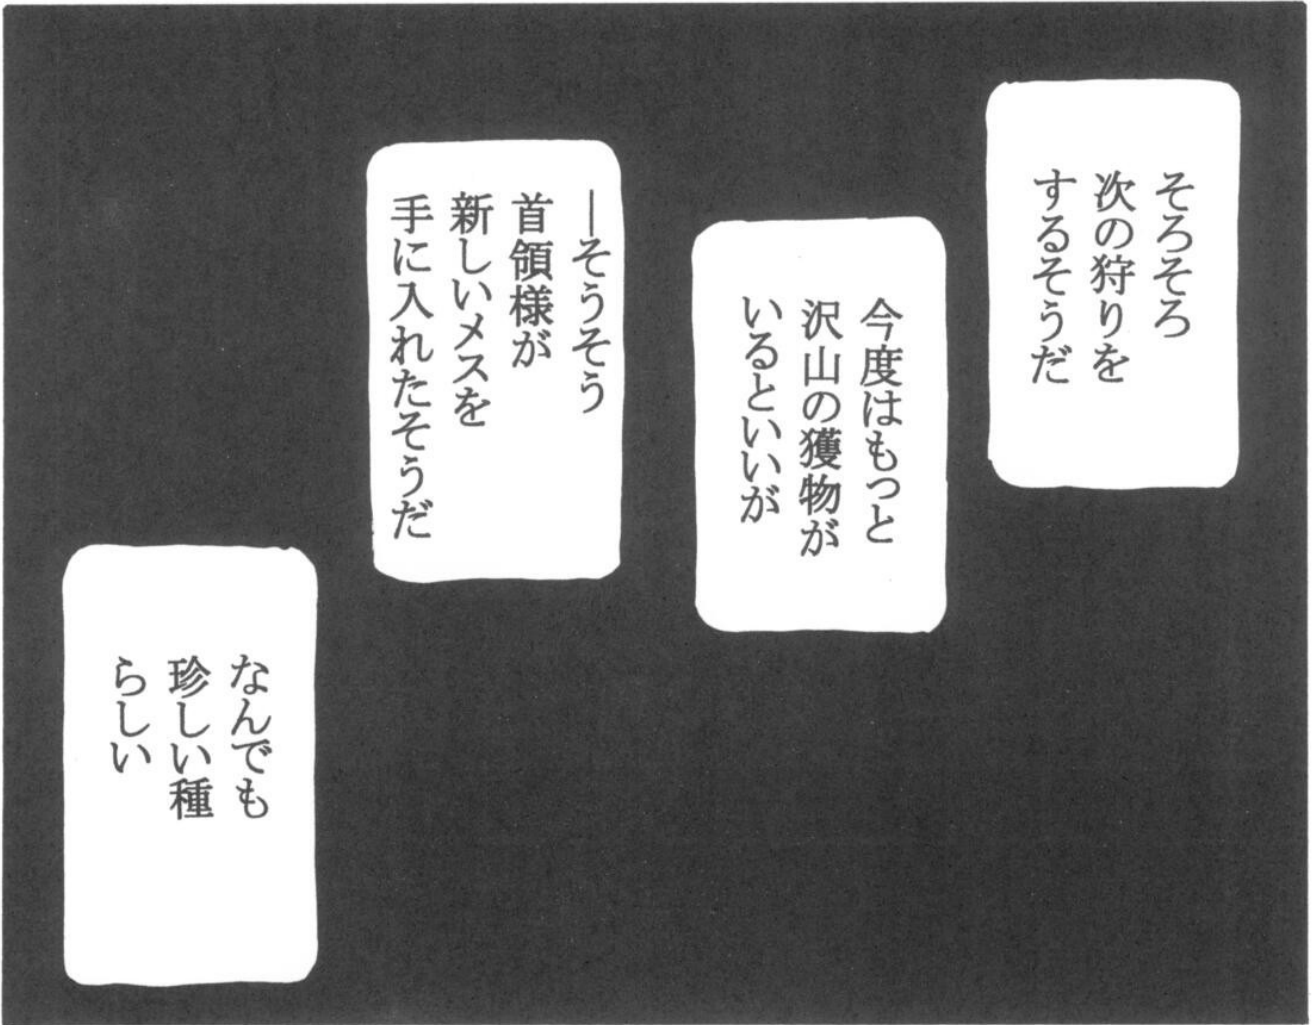 そろそろ
次の狩りを
するそうだ
今度はもっと
沢山の獲物が
いるといいが
―そうそう
首領様が
新しいメスを
手に入れたそうだ
なんでも
珍しい種
らしい